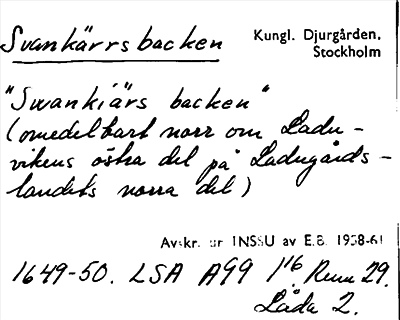 Svankärrsbacken
Kungl. Djurgården,
Stockholm
"Swankiärs backen"
(omedelbart norr om Ladu-
vikens östra del på Ladugårds-
landets norra del)
Avskr. ur INSSU av E.B. 1938-61
1649-50. LSA A99 1¹⁶. Renn 29.
Låda 2.